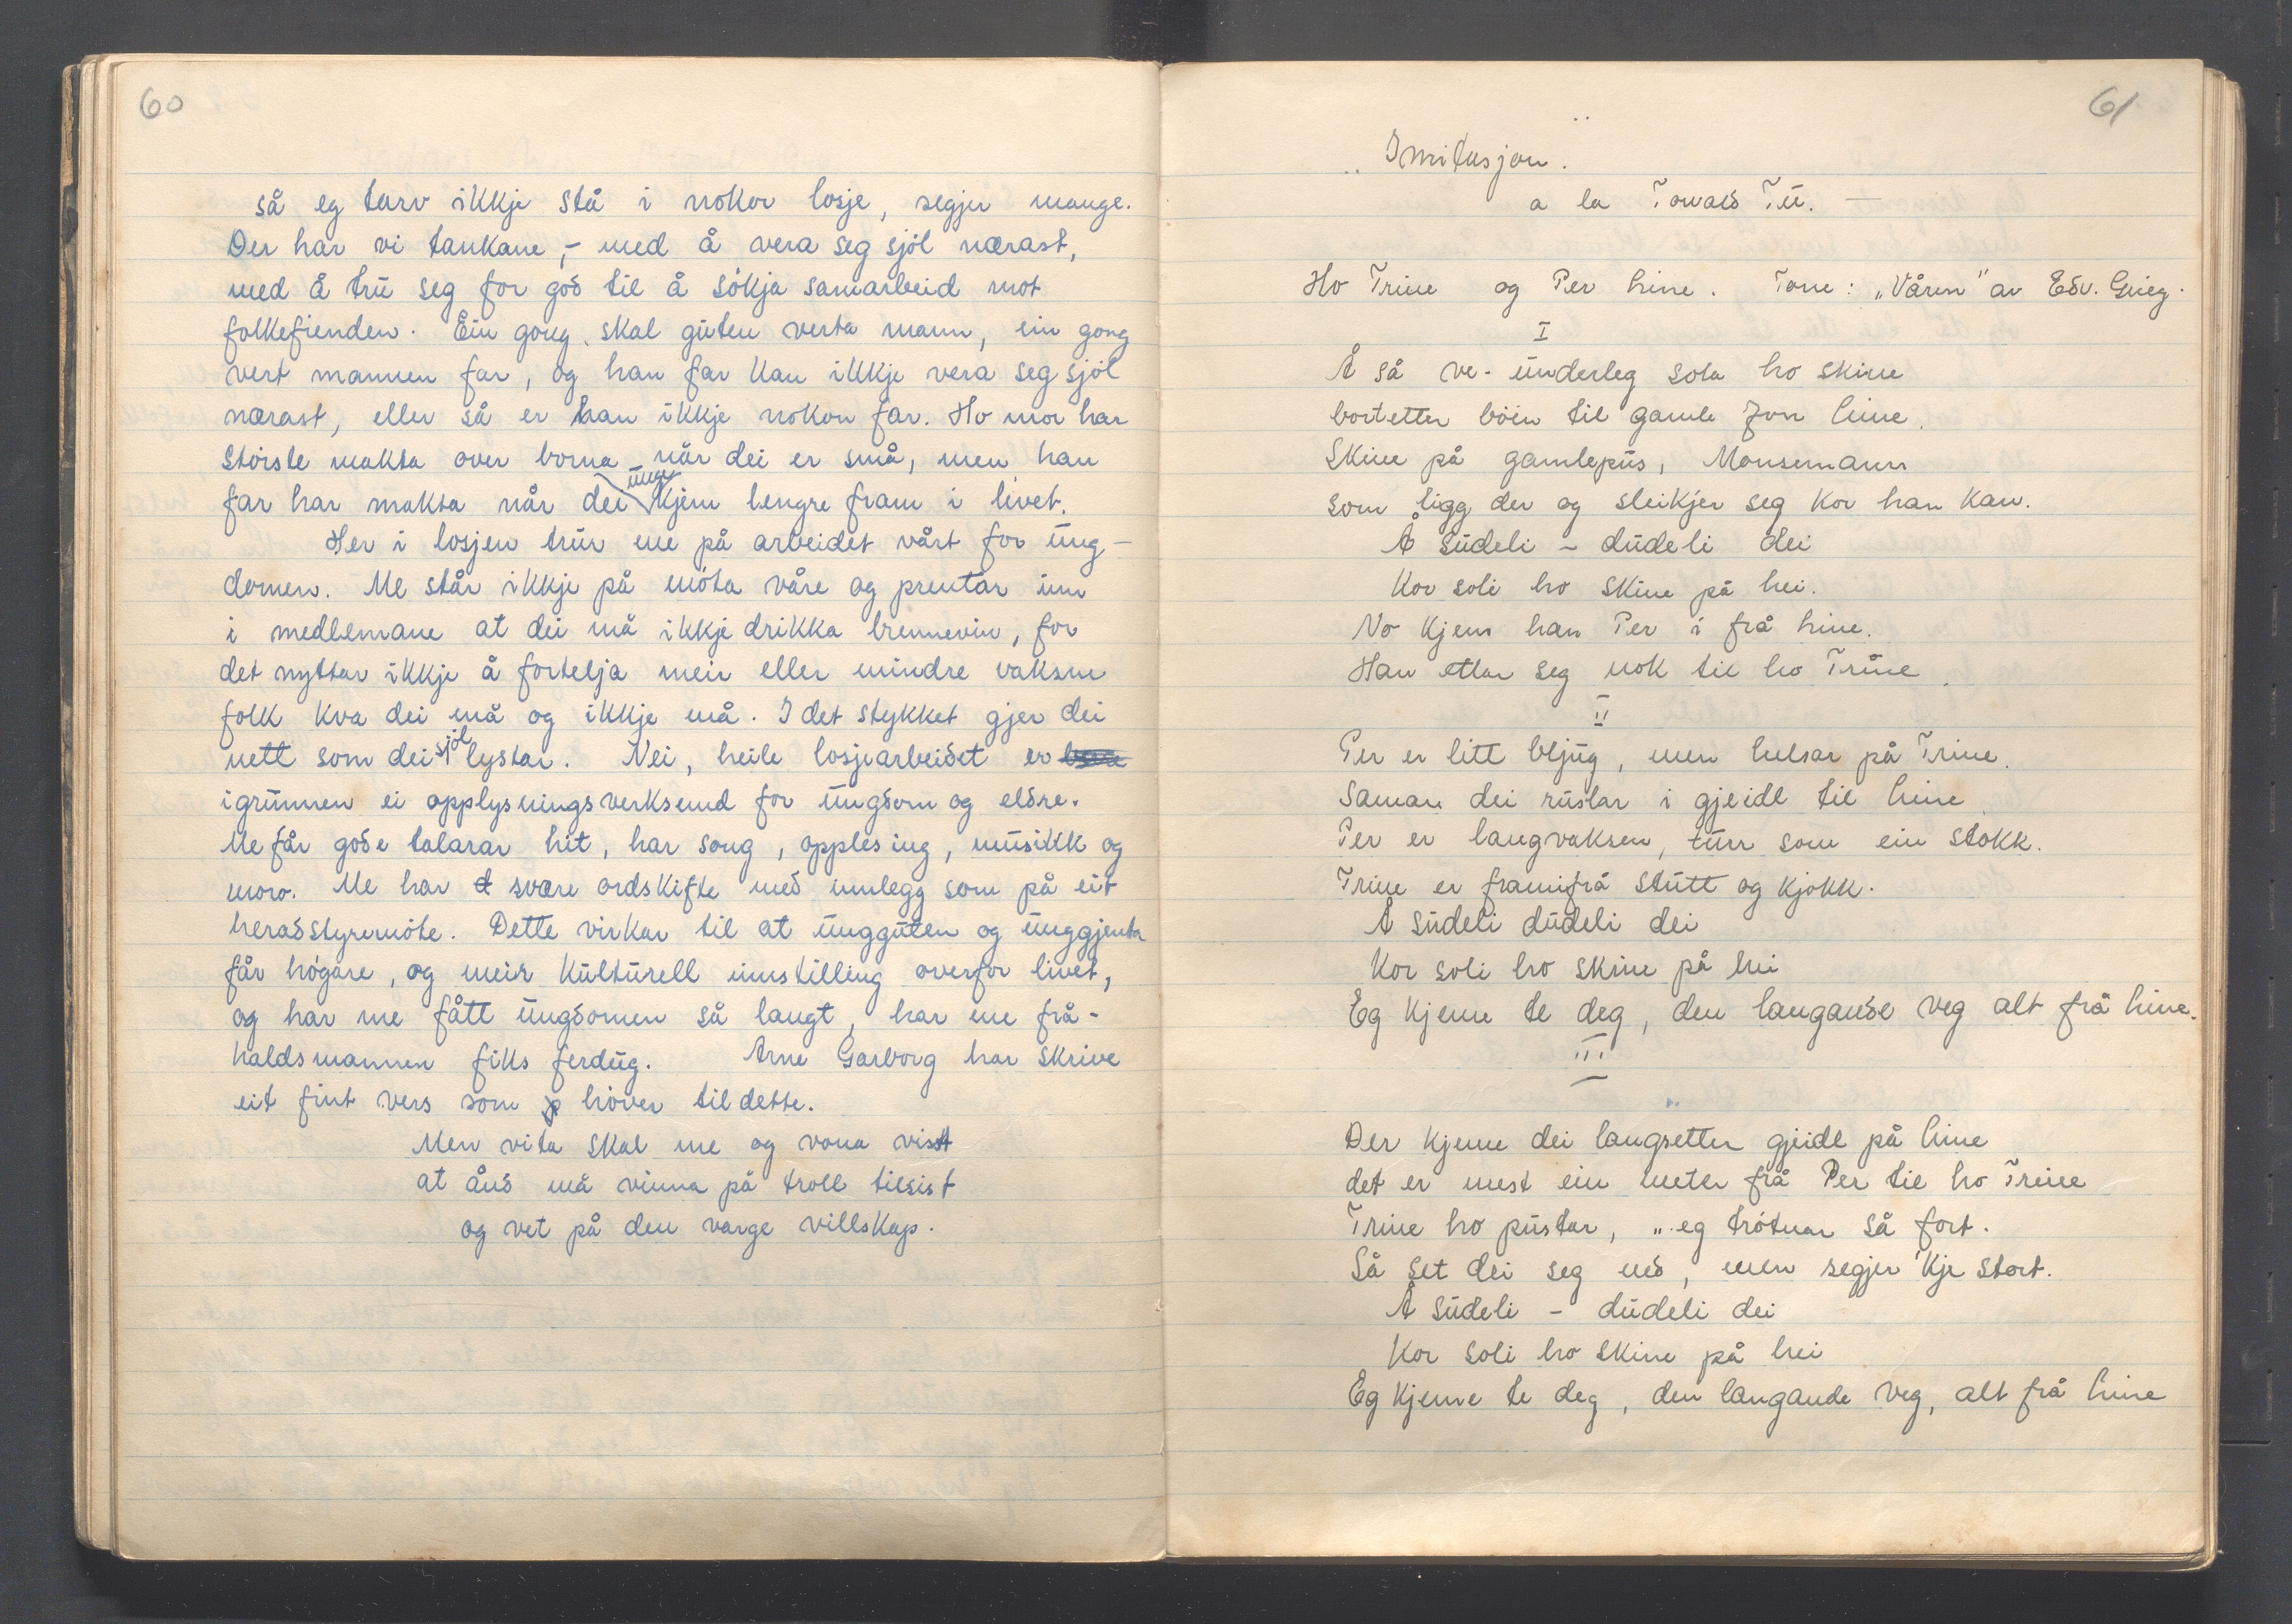 60
så eg tarv ikkje stå i nokor losje, segjer mange.
Der har vi tankane, – med å vera seg sjöl nærast,
med å tru seg for god til å sökja samarbeid mot
folkefienden. Ein gong skal guten verta mann, ein gong
vert mannen far, og han far kan ikkje vera seg sjöl
nærast, eller så er han ikkje nokon far. Ho mor har
störste makta over borna når dei er små, men han
far har makta når dei unge kjem lengre fram i livet.
Her i losjen trur me på arbeidet vårt for ung-
domen. Me står ikkje på möta våre og prentar inn
i medlemane at dei må ikkje drikka brennevin, for
det nyttar ikkje å fortelja meir eller mindre vaksne
folk kva dei må og ikkje må. I det stykket gjer dei
nett som dei sjöl lystar. Nei, heile losjearbeidet er bare
igrunnen ei opplysningsverksemd for ungdom og eldre.
Me får gode talarar hit, har song, opplesing, musikk og
moro. Me har svære ordskifte med innlegg som på eit
heradstyremöte. Dette virkar til at ungguten og unggjenta
får högare, og meir kulturell innstilling overfor livet,
og har me fått ungdomen så langt, har me frå-
haldsmannen fiks ferdug. Arne Garborg har skrive
eit fint vers som höver til dette.
Men vita skal me og vona visst
at ånd må vinna på troll tilsist
og vet på den varge villskap.
61
Imitasjon.
a la Towald Tu. —
Ho Trine og Per hine. Tone: „Våren" av Edv. Grieg.
I
Å så ve-underleg sola ho skine
bortetter böin til gamle Jon Line.
Skine på gamlepus, Monsemann
som ligg der og sleikjer seg kor han kan.
Å sudeli – dudeli dei
Kor soli ho skine på hei.
No kjem han Per i frå hine.
Han ettar seg nok til ho Trine.
II
Per er litt bljug, men helsar på Trine.
Saman dei ruslar i gjeidl til hine
Per er langvaksen, turr som ein stokk.
Trine er framifrå stutt og kjokk.
Å sudeli dudeli dei
Kor soli ho skine på hei
Eg kjeme te deg, den langande veg alt frå hine.
III
Der kjeme dei langsetter gjeidl på hine
det er mest ein meter frå Per til ho Trine
Trine ho pustar, „eg trötnar så fort.
Så set dei seg ned, men segjer 'kje stort.
Å sudeli – dudeli dei
Kor soli ho skine på hei
Eg kjeme te deg, den langande veg, alt frå hine